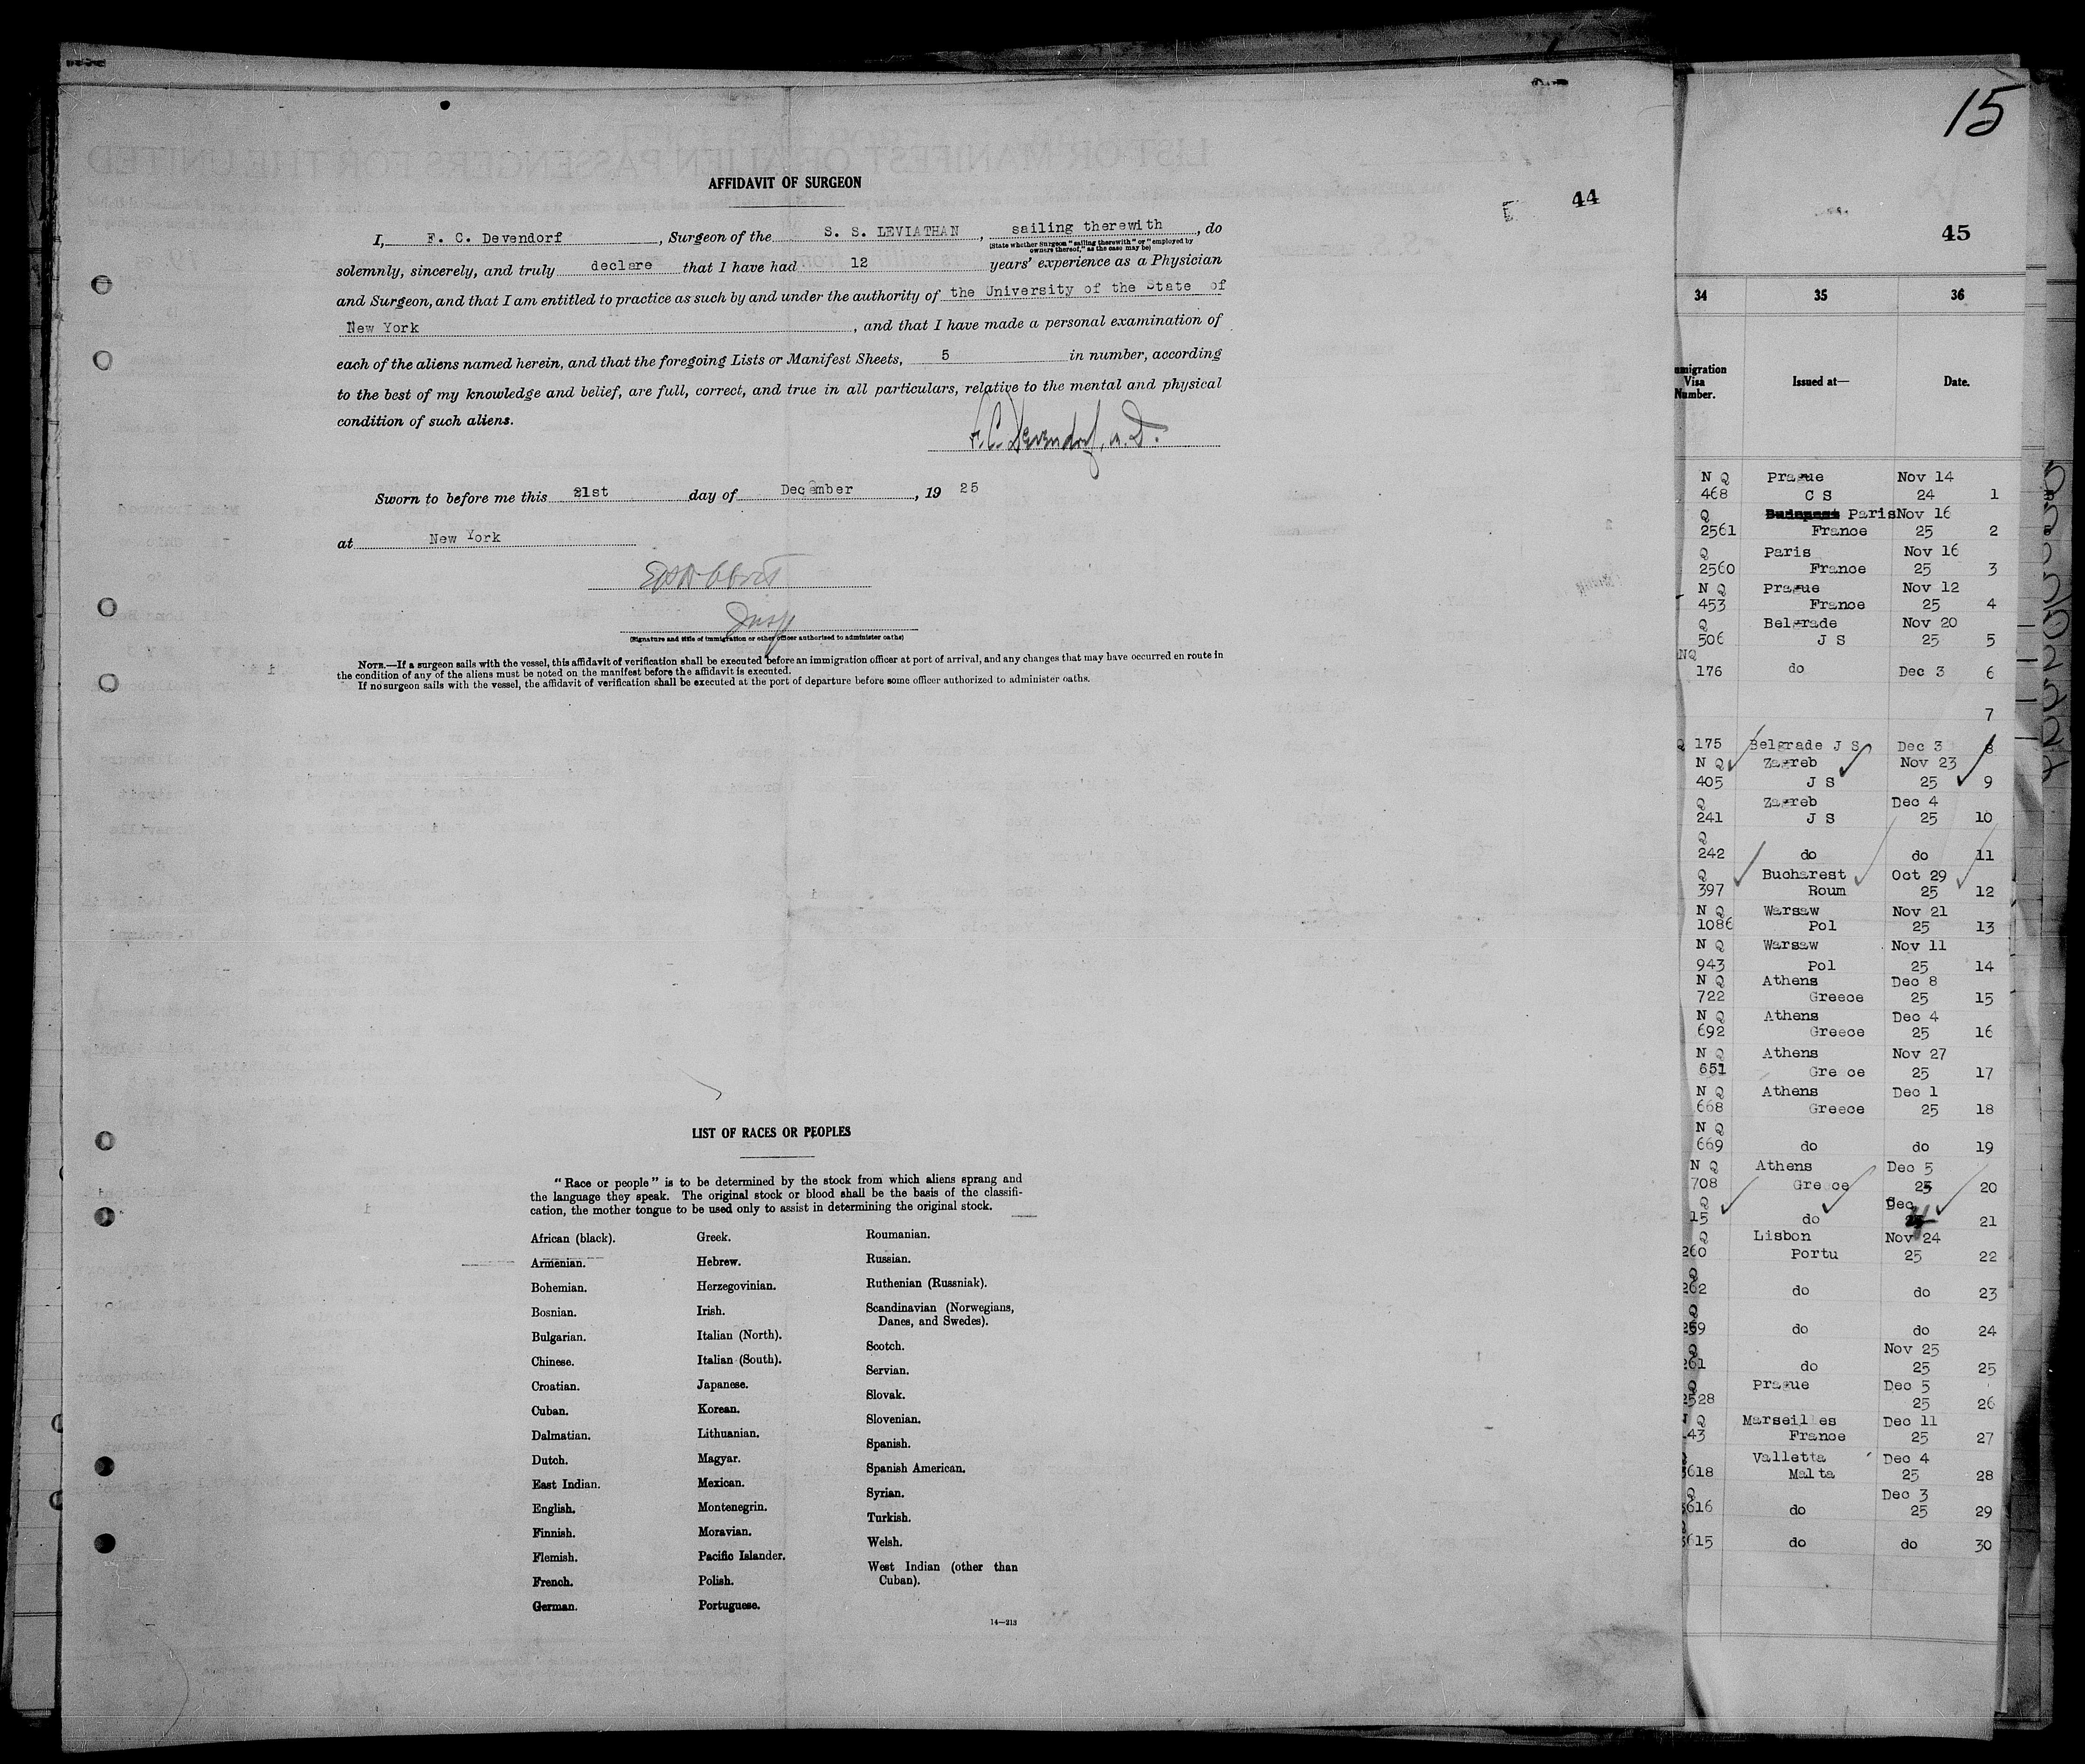 AFFIDAVIT OF SURGEON
44
I, F. C. Devendorf, Surgeon of the S. S. LEVIATHAN, sailing therewith, do
(State whether Surgeon "sailing therewith" or "employed by
owners thereof," as the case may be)
solemnly, sincerely, and truly declare that I have had 12 years' experience as a Physician
and Surgeon, and that I am entitled to practice as such by and under the authority of the University of the State of
New York, and that I have made a personal examination of
each of the aliens named herein, and that the foregoing Lists or Manifest Sheets, 5 in number, according
to the best of my knowledge and belief, are full, correct, and true in all particulars, relative to the mental and physical
condition of such aliens.
F. C. Devendorf, M. D.
Sworn to before me this 21st day of December, 19 25
at New York
Insp
(Signature and title of immigration or other officer authorized to administer oaths)
NOTE.—If a surgeon sails with the vessel, this affidavit of verification shall be executed before an immigration officer at port of arrival, and any changes that may have occurred en route in
the condition of any of the aliens must be noted on the manifest before the affidavit is executed.
If no surgeon sails with the vessel, the affidavit of verification shall be executed at the port of departure before some officer authorized to administer oaths.
LIST OF RACES OR PEOPLES
"Race or people" is to be determined by the stock from which aliens sprang and
the language they speak. The original stock or blood shall be the basis of the classifi-
cation, the mother tongue to be used only to assist in determining the original stock.
African (black).
Armenian.
Bohemian.
Bosnian.
Bulgarian.
Chinese.
Croatian.
Cuban.
Dalmatian.
Dutch.
East Indian.
English.
Finnish.
Flemish.
French.
German.
Greek.
Hebrew.
Herzegovinian.
Irish.
Italian (North).
Italian (South).
Japanese.
Korean.
Lithuanian.
Magyar.
Mexican.
Montenegrin.
Moravian.
Pacific Islander.
Polish.
Portuguese.
Roumanian.
Russian.
Ruthenian (Russniak).
Scandinavian (Norwegians,
Danes, and Swedes).
Scotch.
Servian.
Slovak.
Slovenian.
Spanish.
Spanish American.
Syrian.
Turkish.
Welsh.
West Indian (other than
Cuban).
14—213
15
45
34 35 36
Visa
Number. Issued at— Date.
N Q Prague Nov 14
468 C S 24 1
Q Paris Nov 16
2561 France 25 2
Q Paris Nov 16
2560 France 25 3
N Q Prague Nov 12
453 France 25 4
Q Belgrade Nov 20
506 J S 25 5
NQ
176 do Dec 3 6
7
Q 175 Belgrade J S Dec 3 8
N Q Zagreb Nov 23
405 J S 25 9
Q Zagreb Dec 4
241 J S 25 10
Q
242 do do 11
Q Bucharest Oct 29
397 Roum 25 12
N Q Warsaw Nov 21
1086 Pol 25 13
N Q Warsaw Nov 11
943 Pol 25 14
N Q Athens Dec 8
722 Greece 25 15
N Q Athens Dec 4
692 Greece 25 16
N Q Athens Nov 27
651 Greece 25 17
N Q Athens Dec 1
668 Greece 25 18
N Q
669 do do 19
N Q Athens Dec 5
708 Greece 25 20
Q Dec
15 do 4 21
Q Lisbon Nov 24
260 Portu 25 22
Q
262 do do 23
Q
259 do do 24
Q Nov 25
261 do 25 25
Q Prague Dec 5
2528 25 26
N Q Marseilles Dec 11
43 France 25 27
Valletta Dec 4
3618 Malta 25 28
Q Dec 3
3616 do 25 29
3615 do do 30